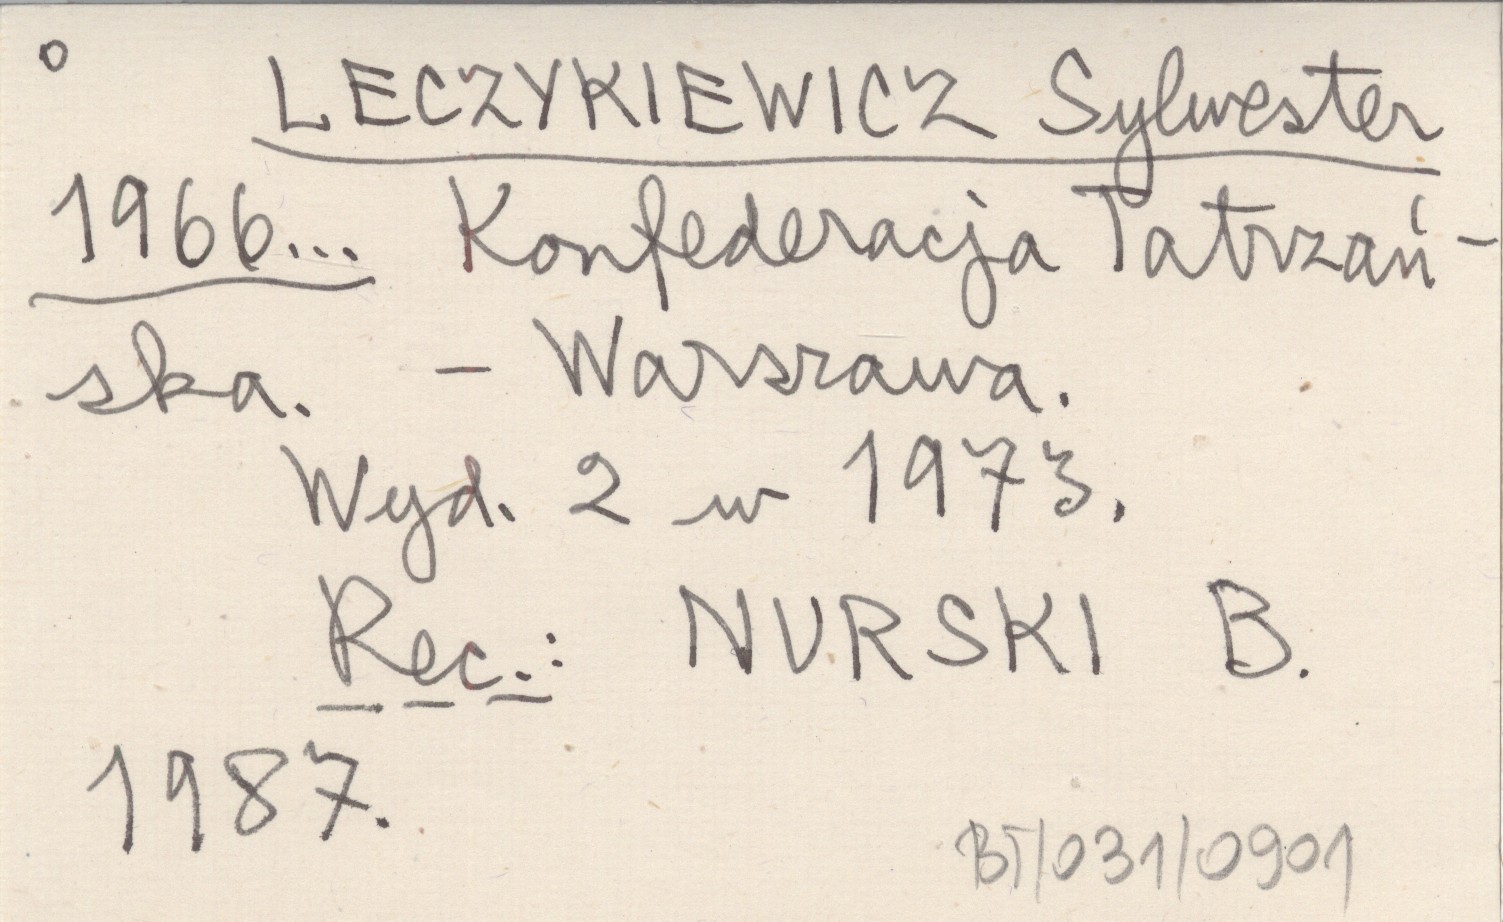 o LECZYKIEWICZ Sylwester
1966... Konfederacja Tatrzań-
ska. - Warszawa.
Wyd. 2 w 1973.
Rec.: NURSKI B.
1987.
BT/031/0901